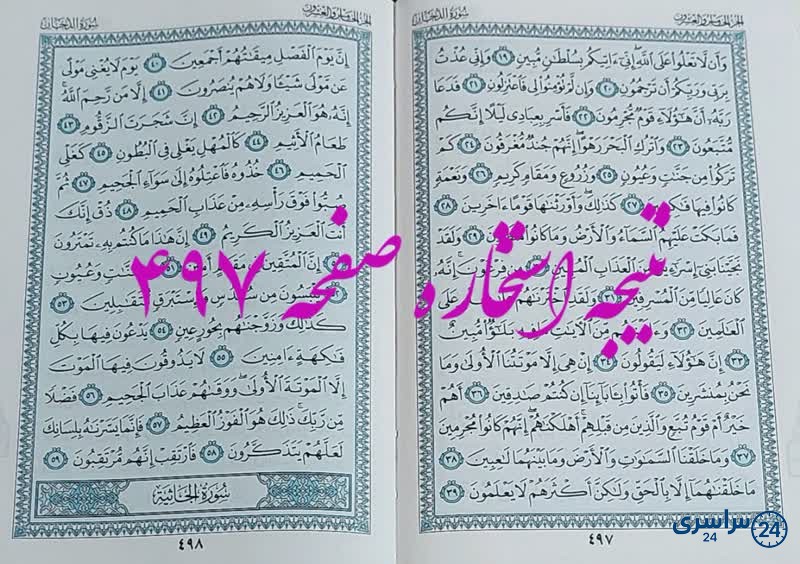 الجزء الخامس والعشرون سورة الدخان
وَأَن لَّا تَعْلُوا۟ عَلَى ٱللَّهِ إِنِّىٓ ءَاتِيكُم بِسُلْطَٰنٍ مُّبِينٍ ١٩ وَإِنِّى عُذْتُ
بِرَبِّى وَرَبِّكُمْ أَن تَرْجُمُونِ ٢٠ وَإِن لَّمْ تُؤْمِنُوا۟ لِى فَٱعْتَزِلُونِ ٢١ فَدَعَا
رَبَّهُۥٓ أَنَّ هَٰٓؤُلَآءِ قَوْمٌ مُّجْرِمُونَ ٢٢ فَأَسْرِ بِعِبَادِى لَيْلًا إِنَّكُم
مُّتَّبَعُونَ ٢٣ وَٱتْرُكِ ٱلْبَحْرَ رَهْوًا إِنَّهُمْ جُندٌ مُّغْرَقُونَ ٢٤ كَمْ
تَرَكُوا۟ مِن جَنَّٰتٍ وَعُيُونٍ ٢٥ وَزُرُوعٍ وَمَقَامٍ كَرِيمٍ ٢٦ وَنَعْمَةٍ
كَانُوا۟ فِيهَا فَٰكِهِينَ ٢٧ كَذَٰلِكَ وَأَوْرَثْنَٰهَا قَوْمًا ءَاخَرِينَ ٢٨
فَمَا بَكَتْ عَلَيْهِمُ ٱلسَّمَآءُ وَٱلْأَرْضُ وَمَا كَانُوا۟ مُنظَرِينَ ٢٩ وَلَقَدْ
نَجَّيْنَا بَنِىٓ إِسْرَٰٓءِيلَ مِنَ ٱلْعَذَابِ ٱلْمُهِينِ ٣٠ مِن فِرْعَوْنَ إِنَّهُۥ
كَانَ عَالِيًا مِّنَ ٱلْمُسْرِفِينَ ٣١ وَلَقَدِ ٱخْتَرْنَٰهُمْ عَلَى
ٱلْعَٰلَمِينَ ٣٢ مِّنَ ٱلْءَايَٰتِ مَا فِيهِ بَلَٰٓؤٌا۟ مُّبِينٌ
٣٣ إِنَّ هَٰٓؤُلَآءِ لَيَقُولُونَ ٣٤ إِنْ هِىَ إِلَّا مَوْتَتُنَا ٱلْأُولَىٰ وَمَا
نَحْنُ بِمُنشَرِينَ ٣٥ فَأْتُوا۟ بِـَٔابَآئِنَآ إِن كُنتُمْ صَٰدِقِينَ ٣٦ أَهُمْ
خَيْرٌ أَمْ قَوْمُ تُبَّعٍ وَٱلَّذِينَ مِن قَبْلِهِمْ أَهْلَكْنَٰهُمْ إِنَّهُمْ كَانُوا۟ مُجْرِمِينَ
٣٧ وَمَا خَلَقْنَا ٱلسَّمَٰوَٰتِ وَٱلْأَرْضَ وَمَا بَيْنَهُمَا لَٰعِبِينَ ٣٨
مَا خَلَقْنَٰهُمَآ إِلَّا بِٱلْحَقِّ وَلَٰكِنَّ أَكْثَرَهُمْ لَا يَعْلَمُونَ ٣٩
٤٩٧
الجزء الخامس والعشرون سورة الدخان
إِنَّ يَوْمَ ٱلْفَصْلِ مِيقَٰتُهُمْ أَجْمَعِينَ ٤٠ يَوْمَ لَا يُغْنِى مَوْلًى
عَن مَّوْلًى شَيْـًٔا وَلَا هُمْ يُنصَرُونَ ٤١ إِلَّا مَن رَّحِمَ ٱللَّهُ
إِنَّهُۥ هُوَ ٱلْعَزِيزُ ٱلرَّحِيمُ ٤٢ إِنَّ شَجَرَتَ ٱلزَّقُّومِ ٤٣
طَعَامُ ٱلْأَثِيمِ ٤٤ كَٱلْمُهْلِ يَغْلِى فِى ٱلْبُطُونِ ٤٥ كَغَلْىِ
ٱلْحَمِيمِ ٤٦ خُذُوهُ فَٱعْتِلُوهُ إِلَىٰ سَوَآءِ ٱلْجَحِيمِ ٤٧ ثُمَّ
صُبُّوا۟ فَوْقَ رَأْسِهِۦ مِنْ عَذَابِ ٱلْحَمِيمِ ٤٨ ذُقْ إِنَّكَ
أَنتَ ٱلْعَزِيزُ ٱلْكَرِيمُ ٤٩ إِنَّ هَٰذَا مَا كُنتُم بِهِۦ تَمْتَرُونَ
إِنَّ ٱلْمُتَّقِينَ فِى مَقَامٍ أَمِينٍ ٥١ جَنَّٰتٍ وَعُيُونٍ
٥٢ يَلْبَسُونَ مِن سُندُسٍ وَإِسْتَبْرَقٍ مُّتَقَٰبِلِينَ ٥٣
كَذَٰلِكَ وَزَوَّجْنَٰهُم بِحُورٍ عِينٍ ٥٤ يَدْعُونَ فِيهَا بِكُلِّ
فَٰكِهَةٍ ءَامِنِينَ ٥٥ لَا يَذُوقُونَ فِيهَا ٱلْمَوْتَ
إِلَّا ٱلْمَوْتَةَ ٱلْأُولَىٰ وَوَقَىٰهُمْ عَذَابَ ٱلْجَحِيمِ ٥٦ فَضْلًا
مِّن رَّبِّكَ ذَٰلِكَ هُوَ ٱلْفَوْزُ ٱلْعَظِيمُ ٥٧ فَإِنَّمَا يَسَّرْنَٰهُ بِلِسَانِكَ
لَعَلَّهُمْ يَتَذَكَّرُونَ ٥٨ فَٱرْتَقِبْ إِنَّهُم مُّرْتَقِبُونَ ٥٩
سورة الجاثية
٤٩٨
نتیجه استخاره صفحه ۴۹۷
سراسری 24
24